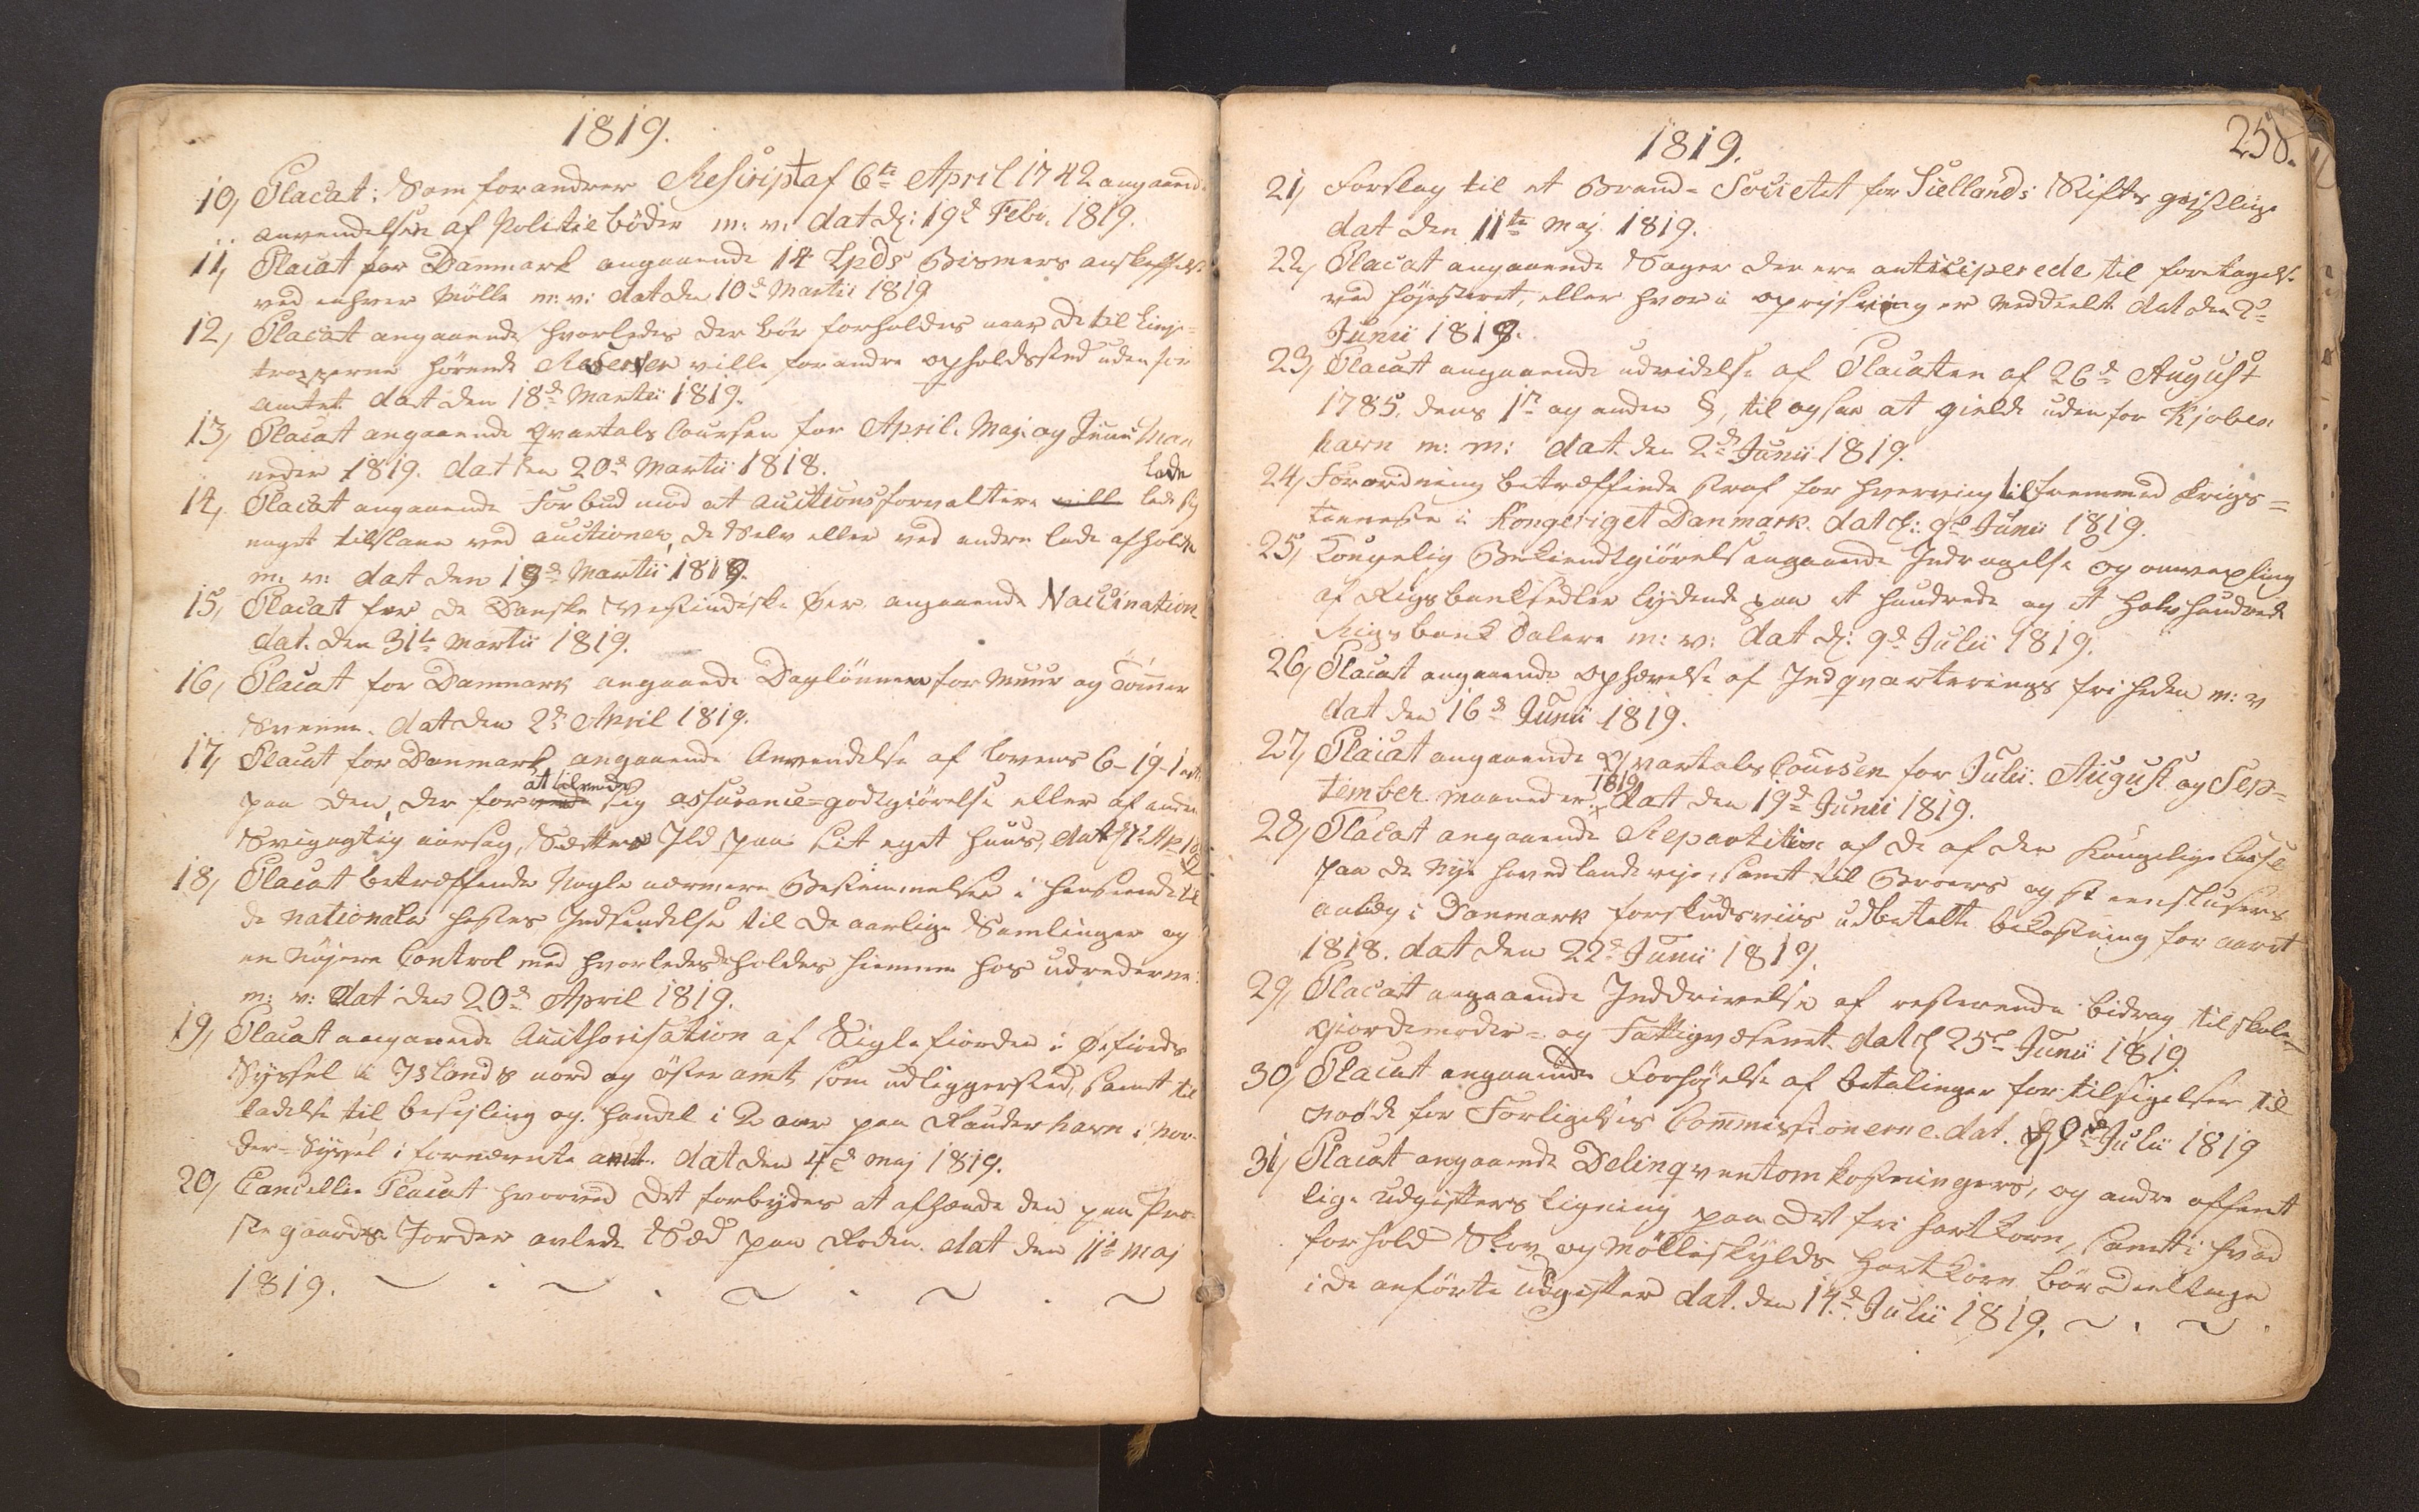 1819.
10, Placat: Som forandrer Rescript af 6te April 1742 angaaende
anvendelsen af Politie bøder m: v: dat d: 19d Febr. 1819.
11, Placat for Danmark angaaende 14 Lpds Bismers anskaffelse
ved enhver Mölle m: v: dat den 10d Martii 1819
12, Placat angaaende hvorledes der bör forholdes naar de til Linje=
tropperne hörende Reserver ville forandre opholdssted uden for
amtet dat den 18d Martii 1819.
13, Placat angaaende Qvartals Coursen for April. Maj. og Junii Maa
neder 1819. dat den 20d Martii 1818.
lade
14, Placat angaaende Forbud mod at auctionsforvaltere ville lade sig
noget tilslaae ved auctioner, de Selv eller ved andre lade afholde
m: v: dat den 19d Martii 1819.
15, Placat for de Danske Vestindiske Øer angaaende Vaccination
dat. den 31te Martii 1819.
16, Placat for Danmark angaaende Daglönnen for Muur og Tömmer
Svenne. dat den 2d April 1819.
17, Placat for Danmark angaaende Anvendelse af Lovens 6-19-1 art:
at tilvende
paa den, der for sig assurance=godtgiörelse eller af anden
Svigagtig aarsag, Sætter Ild paa sit eget Huus,
18, Placat betræffende Nogle nærmere Bestemmelser i henseende til
de nationale hestes Indsendelse til de aarlige Samlinger og
en nöjere Control med hvorledes de holdes hiemme hos udrederne
m: v: dat den 20d April 1819.
19, Placat angaaende Authorisation af Siglefiorden i Øefiords
Syssel i Islands nord og öster amt, som udliggersted, samt til
ladelse til besejling og handel i 2 aar paa Rauderhavn i Nor
der=Syssel i fornævnte amt. dat den 4d Maj 1819.
20, Cancellie Placat hvorved det forbydes at afhænde den paa Præ
ste gaards Jorder avlede Sæd paa Roden. dat den 11te Maj
1819.
1819.
258.
21, Forslag til et Brand=Societet for Siellands Stifts gejstlige
dat den 11te Maj 1819.
22, Placat angaaende Sager der ere anticiperede til foretagelse
ved höjesteret, eller hvor i opreisning er meddeelt dat den 2d
Junii 1819.
23, Placat angaaende udvidelse af Placaten af 26d August
1785. dens 1te og anden §, til ogsaa at gielde uden for Kjøben
havn m: m: dat. den 2d Junii 1819.
24, Forordning betræffende straf for hverving til fremmed krigs=
tieneste i Kongeriget Danmark. dat d: 9d Junii 1819.
25, Kongelig Bekiendtgiörelse angaaende Inddragelse og omvexling
af Rigsbanksedler lydende paa et hundrede og et halv hundrede
Rigsbank Dalere m: v: dat d: 9d Julii 1819.
26, Placat angaaende ophævelse af Indqvarterings friheden m: v
dat den 16d Junii 1819.
27, Placat angaaende Qvartals Coursen for Julii. August. og Sep=
1819
tember maaneder. dat den 19d Junii 1819.
28, Placat angaaende Repartition af de af den Kongelige Casse
paa de Nye hoved landeveje, samt til Broers og steenslusers
anlæg i Danmark forskudsviis udbetalte bekostning for aaret
1818. dat den 22d Junii 1819.
29, Placat angaaende Inddrivelse af resterende bidrag til skole
Gjordemoder= og Fattigvæsenet. dat d 25d Junii 1819.
30, Placat angaaende Forhöjelse af betalinger for tilsigelser til
möde for Forligelses Commissionerne. dat. d 9d Julii 1819
31, Placat angaaende Delinqventomkostningers, og andre offent
lige Udgifters ligning paa det fri hartkorn, samt i hvad
forhold Skov og Mölleskylds Hartkorn bör deeltage
i de anförte Udgifter dat. den 14d Julii 1819.